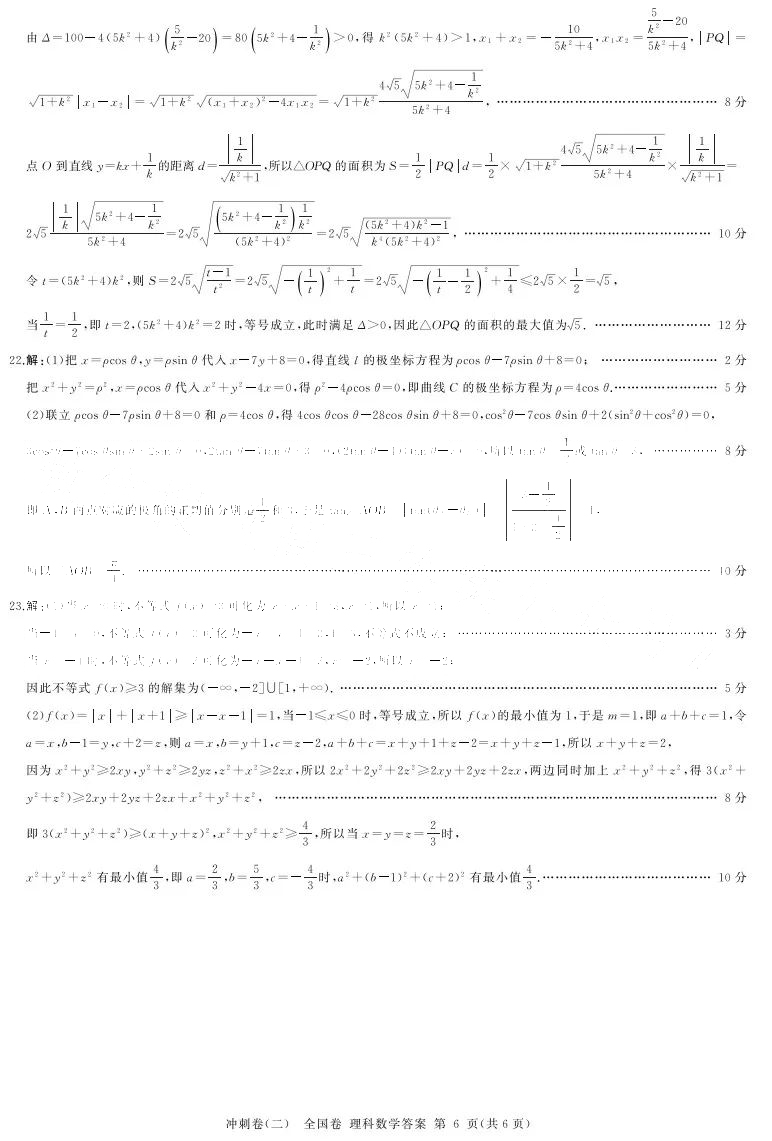 由 Δ=100-4(5k²+4)(5/k²-20)=80(5k²+4-1/k²)>0,得 k²(5k²+4)>1,x₁+x₂=-10/(5k²+4),x₁x₂=(5/k²-20)/(5k²+4),|PQ|=
√(1+k²)|x₁-x₂|=√(1+k²)√((x₁+x₂)²-4x₁x₂)=√(1+k²) 4√5√(5k²+4-1/k²)/(5k²+4). …… 8 分
点 O 到直线 y=kx+1/k的距离 d=|1/k|/√(k²+1),所以△OPQ 的面积为 S=1/2|PQ|d=1/2×√(1+k²) 4√5√(5k²+4-1/k²)/(5k²+4)×|1/k|/√(k²+1)=
2√5 |1/k|√(5k²+4-1/k²)/(5k²+4)=2√5√((5k²+4-1/k²)1/k²/(5k²+4)²)=2√5√(((5k²+4)k²-1)/(k⁴(5k²+4)²)). …… 10 分
令 t=(5k²+4)k²,则 S=2√5√((t-1)/t²)=2√5√(-(1/t)²+1/t)=2√5√(-(1/t-1/2)²+1/4)≤2√5×1/2=√5,
当1/t=1/2,即 t=2,(5k²+4)k²=2 时,等号成立,此时满足 Δ>0,因此△OPQ 的面积的最大值为√5. …… 12 分
22.解:(1)把 x=ρcos θ,y=ρsin θ 代入 x-7y+8=0,得直线 l 的极坐标方程为 ρcos θ-7ρsin θ+8=0; …… 2 分
把 x²+y²=ρ²,x=ρcos θ 代入 x²+y²-4x=0,得 ρ²-4ρcos θ=0,即曲线 C 的极坐标方程为 ρ=4cos θ. …… 5 分
(2)联立 ρcos θ-7ρsin θ+8=0 和 ρ=4cos θ,得 4cos θcos θ-28cos θsin θ+8=0,cos²θ-7cos θsin θ+2(sin²θ+cos²θ)=0,
…… 8 分
…… 10 分
23.解:
…… 3 分
因此不等式 f(x)≥3 的解集为(-∞,-2]∪[1,+∞). …… 5 分
(2)f(x)=|x|+|x+1|≥|x-x-1|=1,当-1≤x≤0 时,等号成立,所以 f(x)的最小值为 1,于是 m=1,即 a+b+c=1,令
a=x,b-1=y,c+2=z,则 a=x,b=y+1,c=z-2,a+b+c=x+y+1+z-2=x+y+z-1,所以 x+y+z=2,
因为 x²+y²≥2xy,y²+z²≥2yz,z²+x²≥2zx,所以 2x²+2y²+2z²≥2xy+2yz+2zx,两边同时加上 x²+y²+z²,得 3(x²+
y²+z²)≥2xy+2yz+2zx+x²+y²+z², …… 8 分
即 3(x²+y²+z²)≥(x+y+z)²,x²+y²+z²≥4/3,所以当 x=y=z=2/3时,
x²+y²+z² 有最小值4/3,即 a=2/3,b=5/3,c=-4/3时,a²+(b-1)²+(c+2)² 有最小值4/3. …… 10 分
冲刺卷(二) 全国卷 理科数学答案 第 6 页(共 6 页)